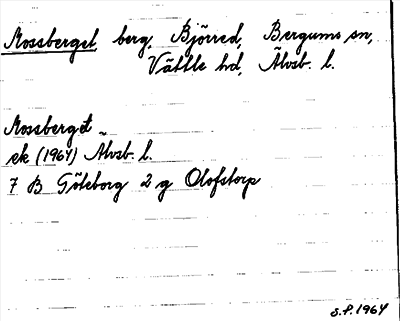 Mossberget, berg, Björred, Bergums sn,
Vättle hd, Älvsb. l.
Mossberget
ek (1964) Älvsb. l.
7 B Göteborg 2 g Olofstorp
S.P. 1964